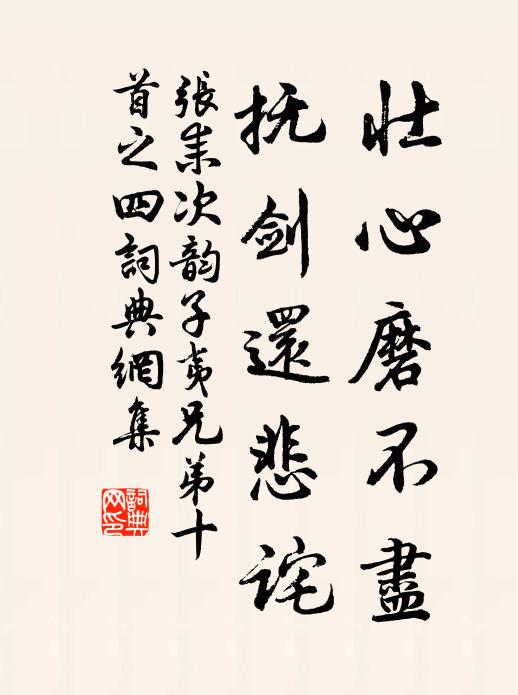 壮心磨不盡
抚劍還悲詫
張耒次韵子夷兄弟十
首之四詞典網集
詞典
网印